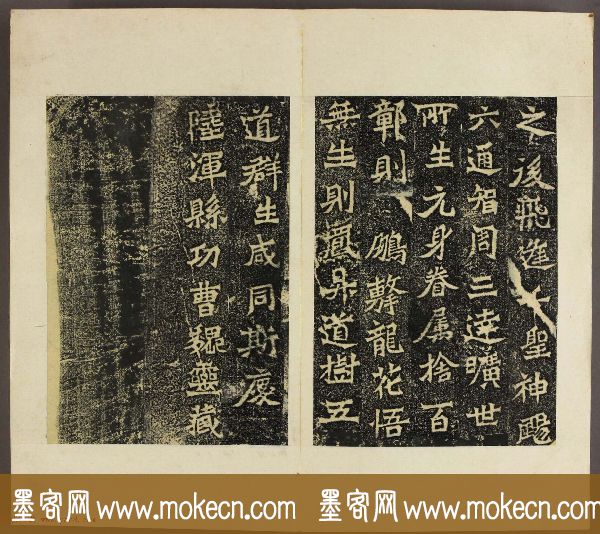 之後飛逢千聖神颺
六通智周三達曠世
所生元身眷属捨百
鄣則鵬擊龍花悟
無生則鳳昇道樹五
道群生咸同斯慶
陸渾縣功曹魏靈藏
墨客网 www.mokecn.com 墨客网 www.mokecn.com